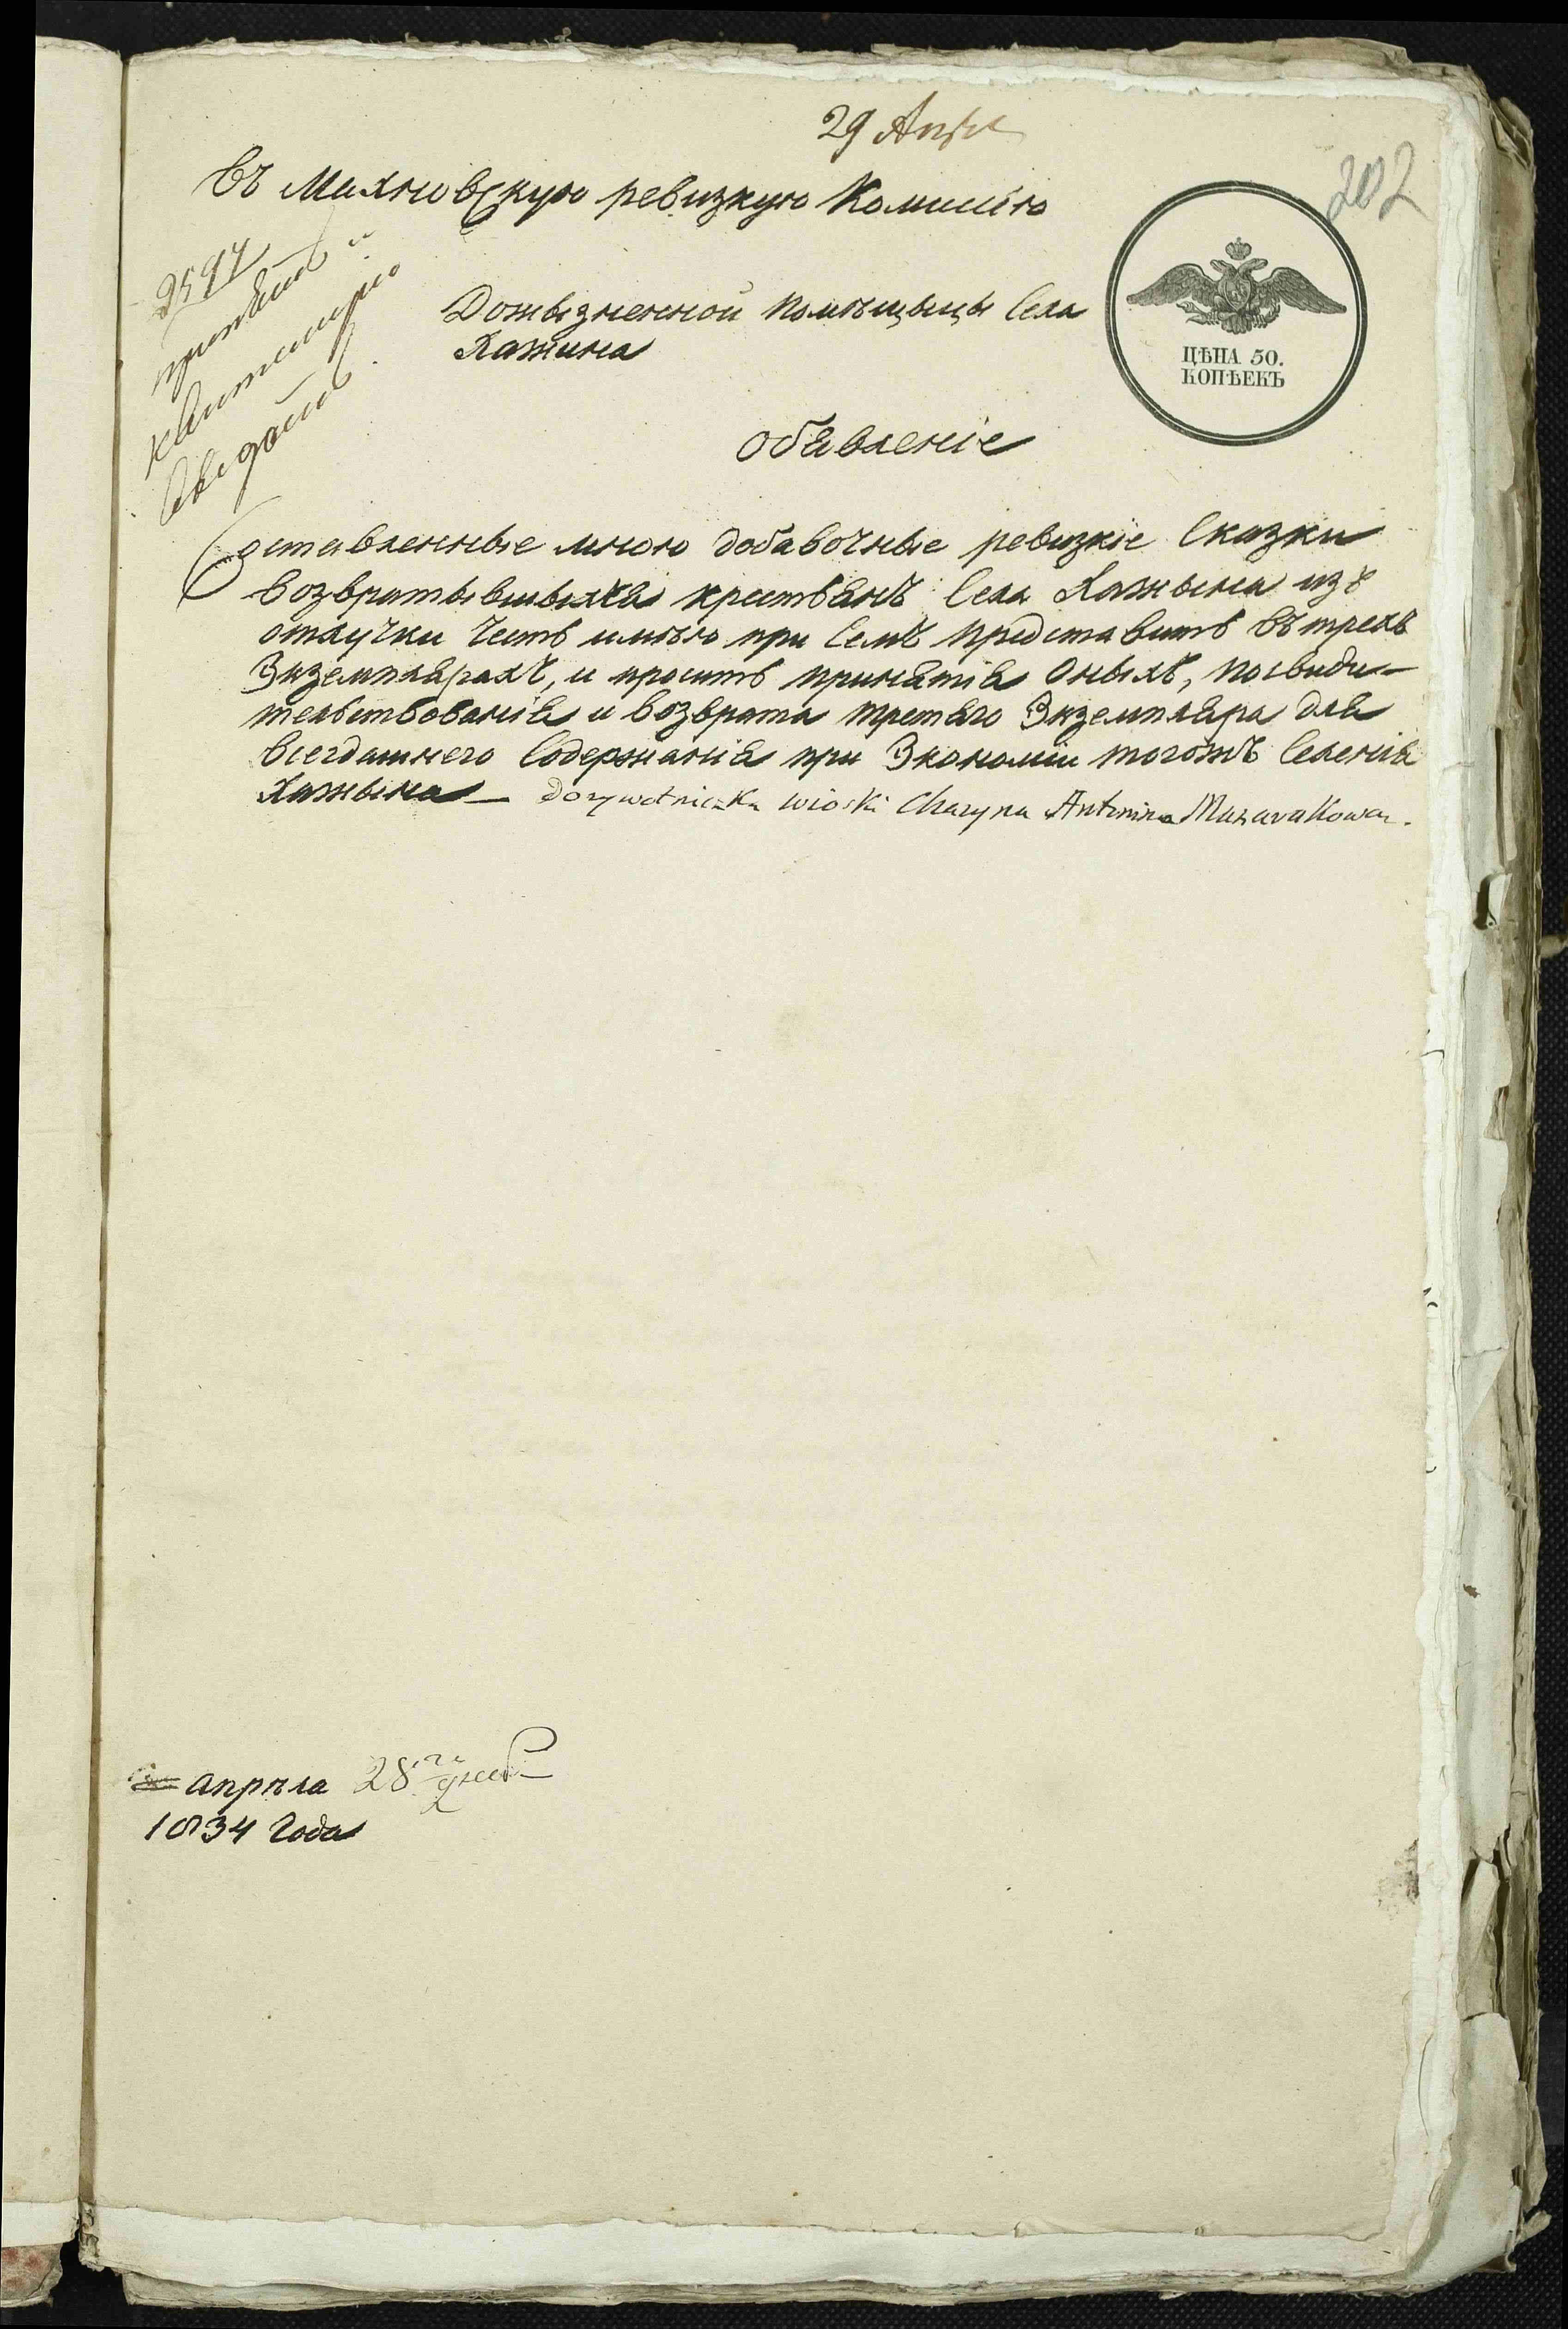 29 Апрѣл
202
Въ Махновскую ревизкую Комисію
2594
принять и
квитанцію
выдать.
Дожызненной помѣщыцы Села
Хажина
ЦѢНА 50.
КОПѢЕКЪ
обявленіе
Составленные мною добавочные ревизкіе Сказки
возвратывшыхся крестьянъ Села Хажына изъ
отлучки Честь имѣю при Семъ представить въ трехъ
Экземплярахъ, и просить принятія Оныхъ, посвиди-
тельствованія и возврата третяго Экземпляра для
всегдашнего Содержанія при Экономіи тогожъ Селенія
Хажына — Dozywotniczka wioski Chazyna Antonina
апрѣла 28 дня
1834 Года